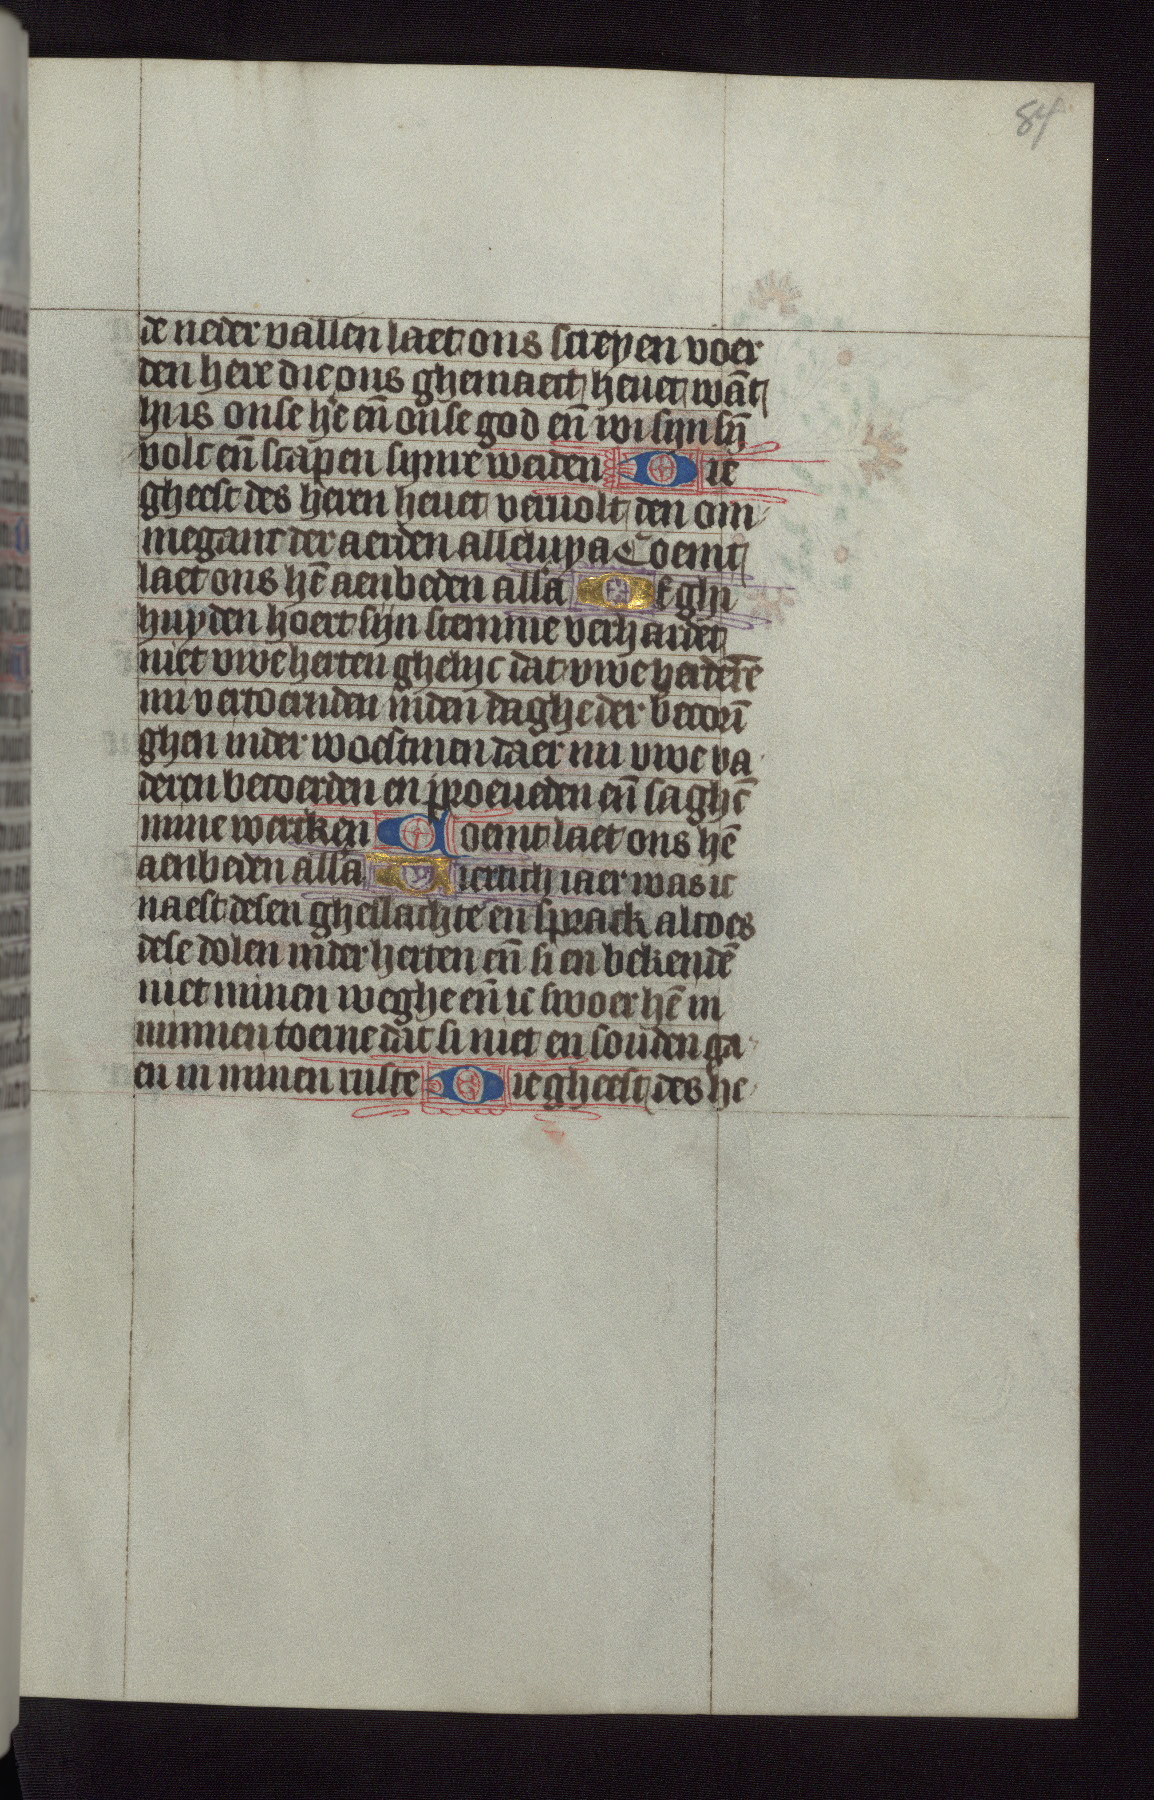 84
de neder vallen laet ons screyen voer
den here die ons ghemaect heuet wāt
hi is onse hē en̄ onse god en̄ wi sijn sij̄
volc en̄ scapen sijnre weiden Die
gheest des heren heuet veruolt den om
meganc der aerden alleluya Coemt
laet ons hē aenbeden all'a Of ghi
huyden hoert sijn stemme verhardet
niet uwe herten ghelijc dat uwe
mi vertoernden inden daghe der becorī
ghen inder woestinen daer mi uwe va
deren becoerden en proeueden en̄ saghē
mine wercken Coemt laet ons hē
aenbeden all'a Viertich iaer was ic
naest desen gheslachte en̄ sprack altoes
dese dolen inder herten en̄ si en bekendē
niet minen weghe en̄ ic swoer hē in
minnen toerne dat si niet en souden ga
en in minen ruste Die gheest des he